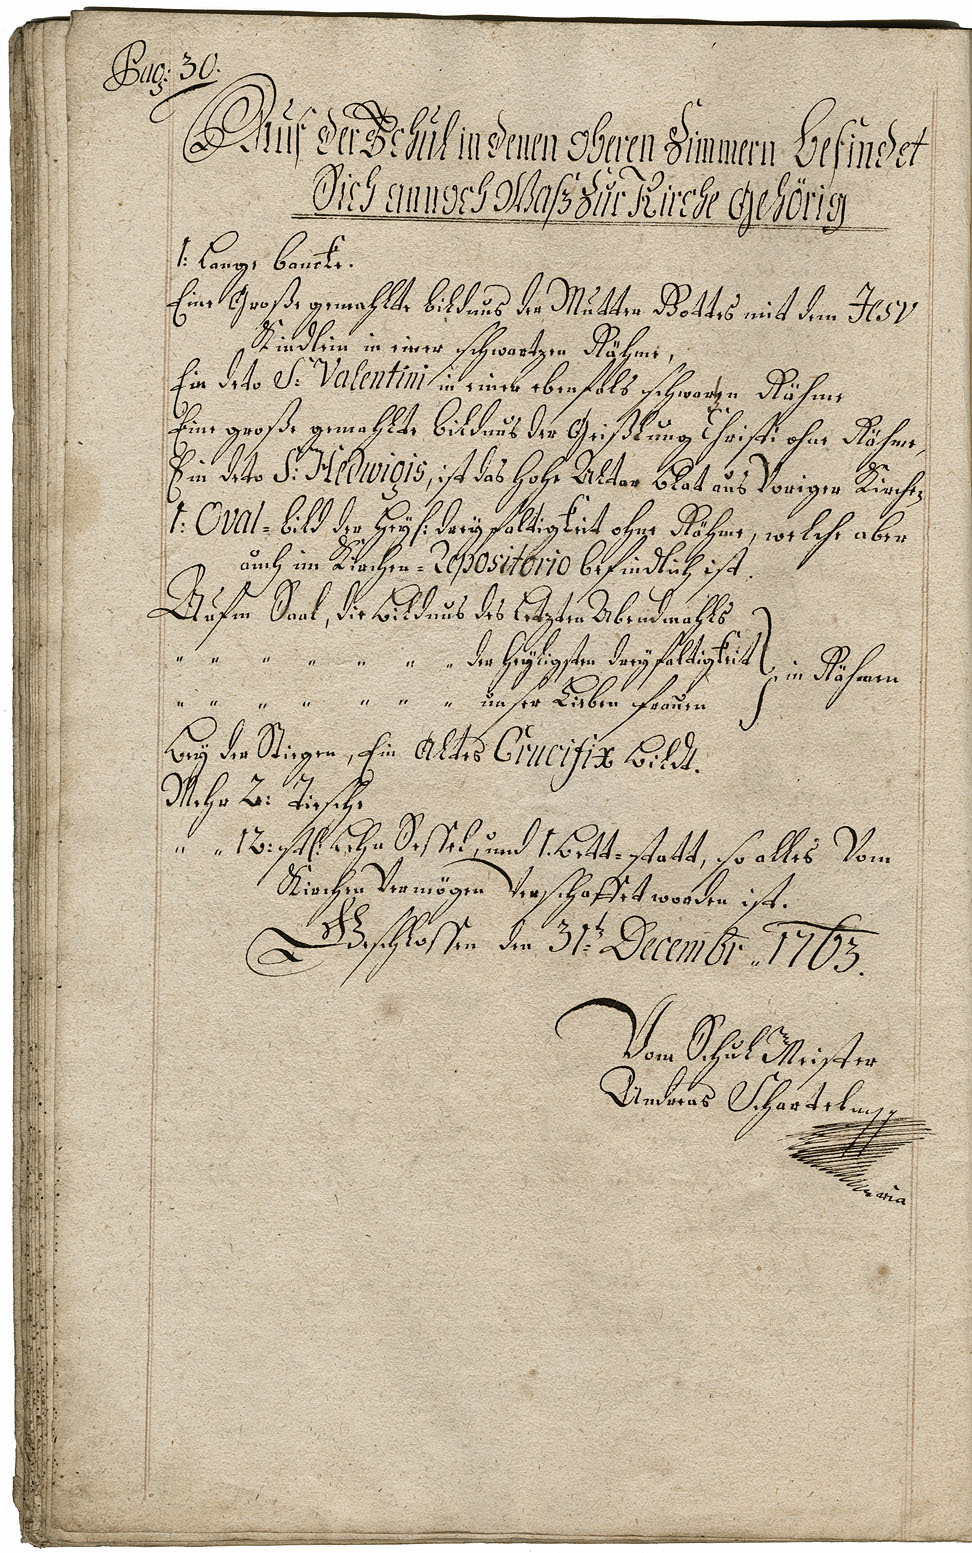 Pag: 30.
Auf der Schul in denen oberen Zimmern befindet
Sich annoch Waß zur Kirche gehörig
1: Lange banckh.
Eine Große gemahlte bildnus der Mutter Gottes mit dem JESV
Kindlein in einer schwartzen Rähme,
Ein deto S: Valentini in einer ebenfals schwarzen Rähme
Eine große gemahlte bildnus der Geißlung Christi ohne Rähme,
Ein deto S: Hedwigis, ist das Hohe Altar blat aus Voriger Kirche,
1: Oval-bild der Heyl: dreyfaltigkeit ohne Rähme, welche aber
auch im Kirchen-Repositorio befindlich ist.
Aufm Saal, die Bildnus des Letzten Abendmahls
" " " " " " " der Heyligsten dreyfaltigkeit } in Rähmen
" " " " " " " unser Lieben frauen
Bey der Stiegen, Ein Altes Crucifix bildt.
Mehr 2: Tische
" " 12: stk: Lehn Sessel, und 1. Bett-statt, so alles Vom
Kirchen Vermögen Verschaffet worden ist.
Geschlossen den 31t: Decembr: 1763.
Vom Schul Meister
Andreas
mpria